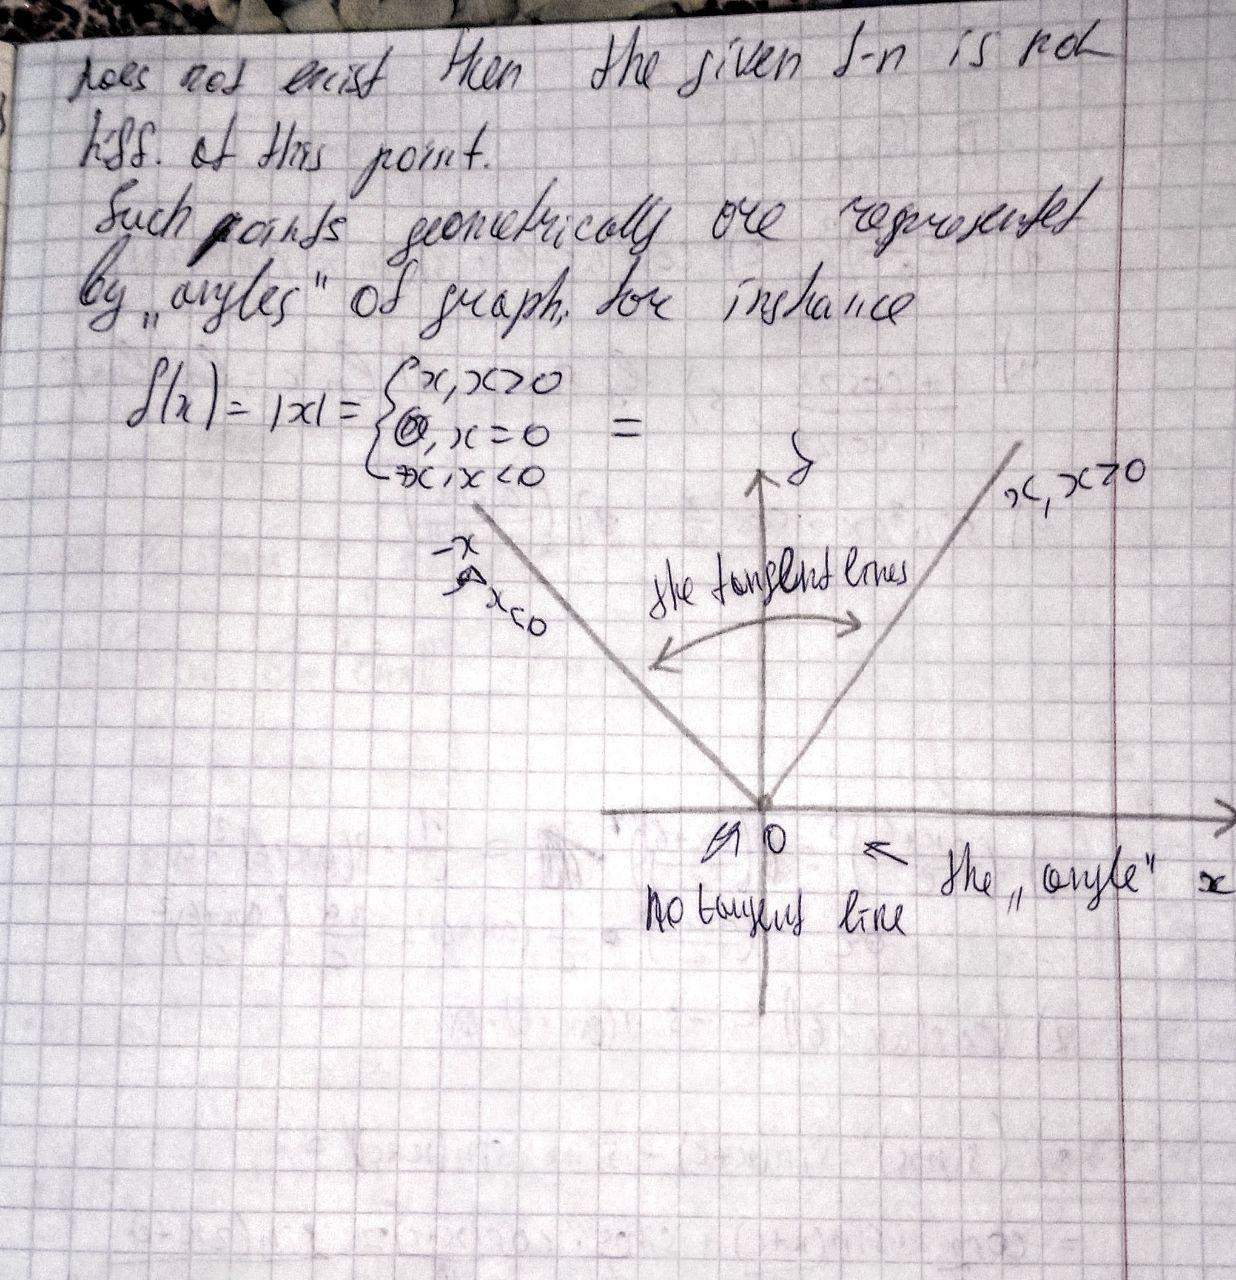 does not exist then the given f-n is not
diff. at this point.
Such points geometrically are represented
by „angles" of graph, for instance
f(x) = |x| = { x, x>0
0, x=0 =
-x, x<0
y
x, x>0
-x
x<0
the tangent lines
0
the „angle" x
no tangent line